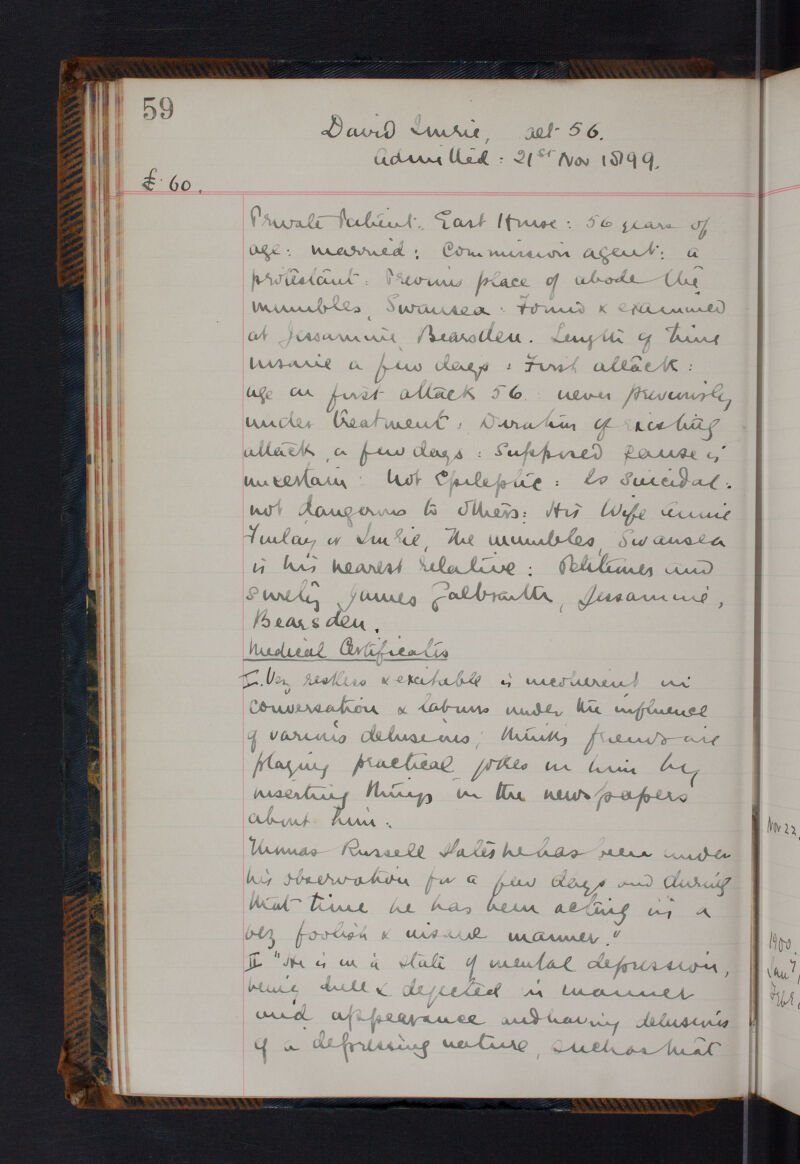 59
David Imrie, aet 56.
Admitted: 21st Nov 1899.
£60.
Private Patient. East House: 56 years of
age: married: Commission agent: a
protestant: Previous place of abode the
mumbles, Swansea: Found & examined
at Jessamine, Bearsden. Length of time
insane a few days: First attack:
age on first attack 56: never previously
under treatment: Duration of existing
attack, a few days: Supposed cause is
uncertain: not Epileptic: Is suicidal:
not dangerous to others: His Wife Annie
Finlay or Imrie, The mumbles, Swansea
is his nearest relative: Petitioner and
Surety James Galbraith, Jessamine,
Bearsden.
Medical Certificates
I. Very restless & excitable is incoherent in
conversation & labours under the influence
of various delusions, thinks friends are
playing practical jokes on him by
inserting things in the newspapers
about him.
Thomas Russell states he has been under
his observation for a few days and during
that time he has been acting in a
very foolish & insane manner."
II "He is in a state of mental depression,
being dull & dejected in manner
and appearance and having delusions
of a depressing nature, such as that
Nov 22.
1900.
Jan 7,